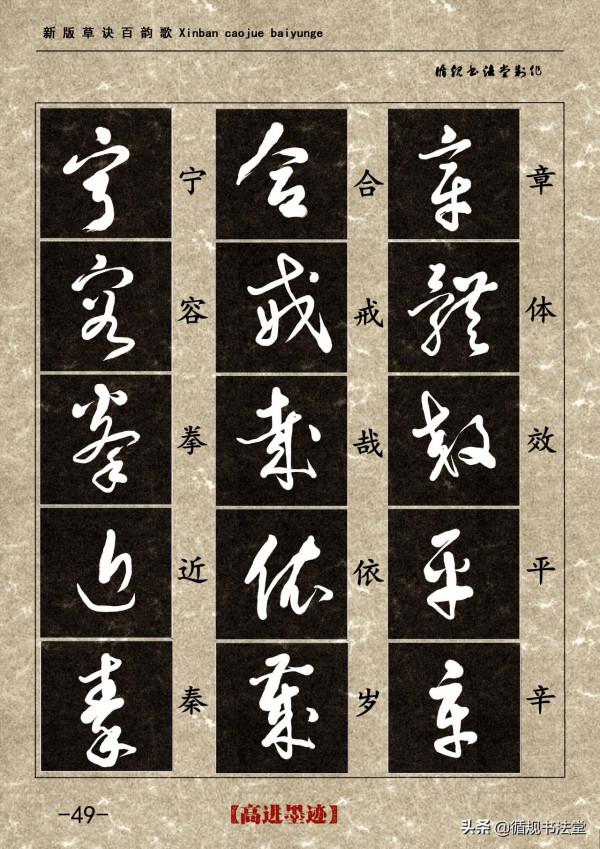 新版草诀百韵歌 Xinban caojue baiyunge
循规书法堂制作
章体效平辛
合戒哉依岁
宁容拳近秦
-49-
【高进墨迹】
头条 @循规书法堂